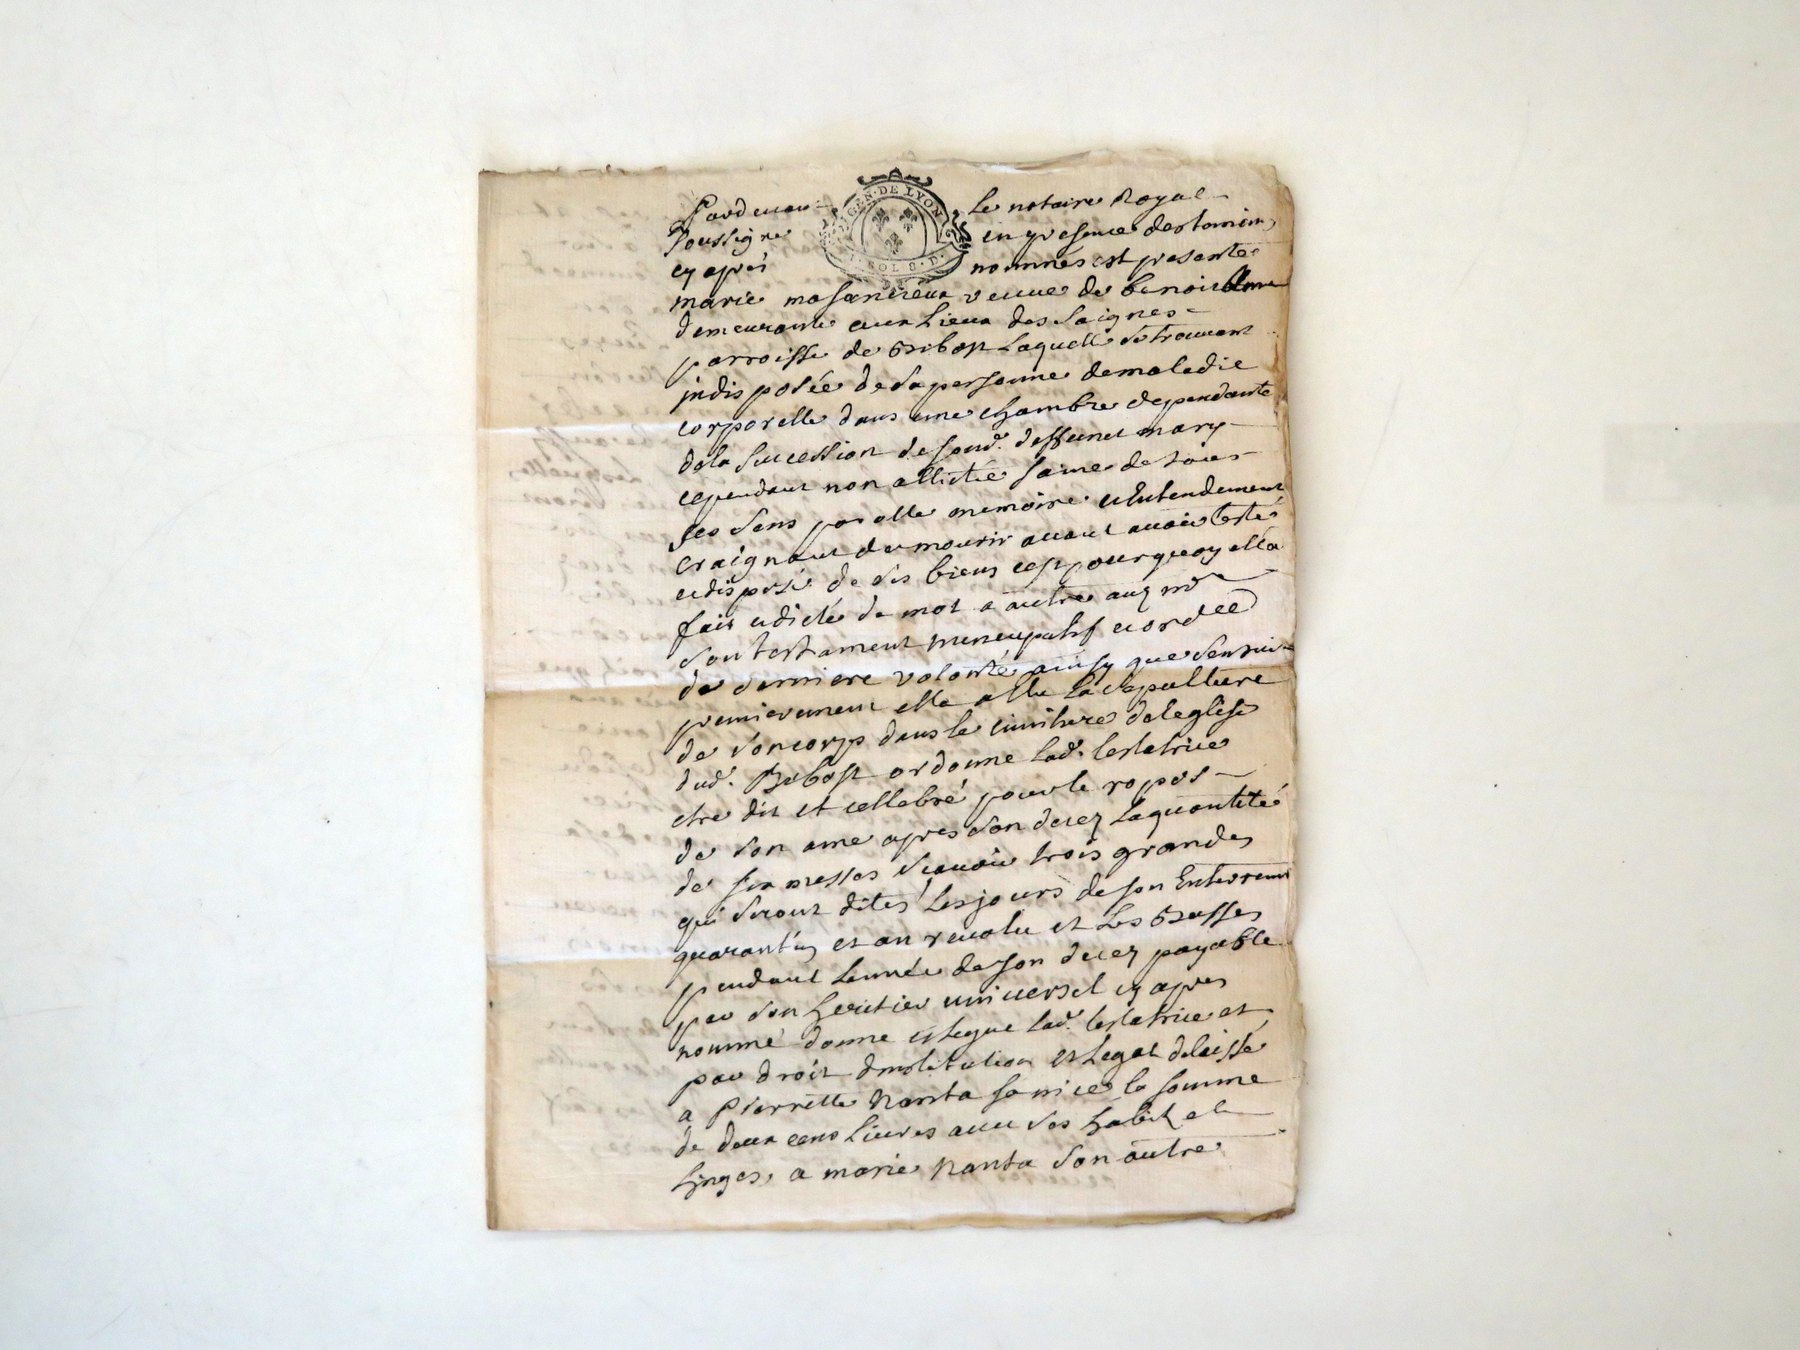 GEN. DE LYON
SOL 8. D.
Pardevant le notaire Royal
soussigné en presence des temoins
cy aprés nommés est presente
marie veuve de benoit
demeurante aux Lieux des Saignes
parroisse de Bibost Laquelle se trouvant
jndisposée de sa personne de maladie
corporelle dans une chambre dependante
de la succession de soud. deffunct mary
cependant non allictée saine de tous
ses sens parolle memoire et Entendement
craignant de mourir avant avoir testé
et disposé de ses biens cest pourquoy ella
fait et dicté de mot a autre a
son testament nuncupatif et ordce
de derniere volonté ainsy que sensuit
premierement elle a Elu La sepulture
de son corps dans le cimitiere de leglise
dud. Bibost ordonne lad. testatrice
etre dit et cellebré pour le repos
de son ame apres son decez La quantité
de six messes scavoir trois grandes
qui seront dites Les jours de son Enterremt
quarantin et an revolu et Les Basses
pendant Lannée de son decez payable
par son heritier universel cy apres
nommé donne et legue lad. testatrice et
par droit dinstitution et legat delaisse
a Pierrette Nanta sa niece la somme
de deux cens Livres avec ses habit et
Linges, a marie Nanta son autre